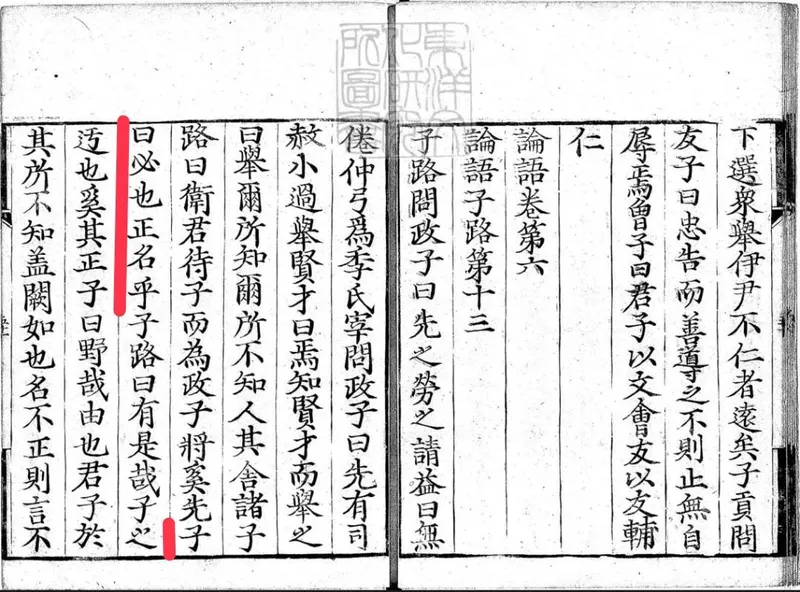 下選衆舉伊尹不仁者遠矣子貢問
友子曰忠告而善導之不則止無自
辱焉曾子曰君子以文會友以友輔
仁
論語卷第六
論語子路第十三
子路問政子曰先之勞之請益曰無
倦仲弓爲季氏宰問政子曰先有司
赦小過舉賢才曰焉知賢才而舉之
曰舉爾所知爾所不知人其舍諸子
路曰衛君待子而為政子將奚先子
曰必也正名乎子路曰有是哉子之
迃也奚其正子曰野哉由也君子於
其所不知盖闕如也名不正則言不